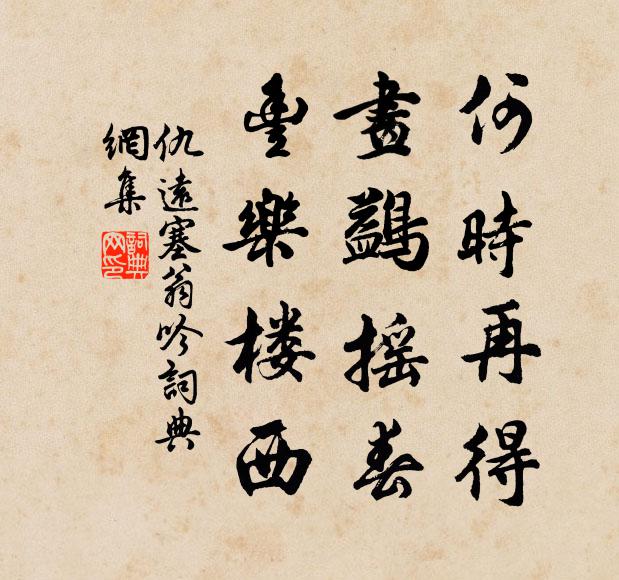 何時再得
畫鷁摇春
豊樂楼西
仇遠塞翁吟詞典
網集
詞典網印